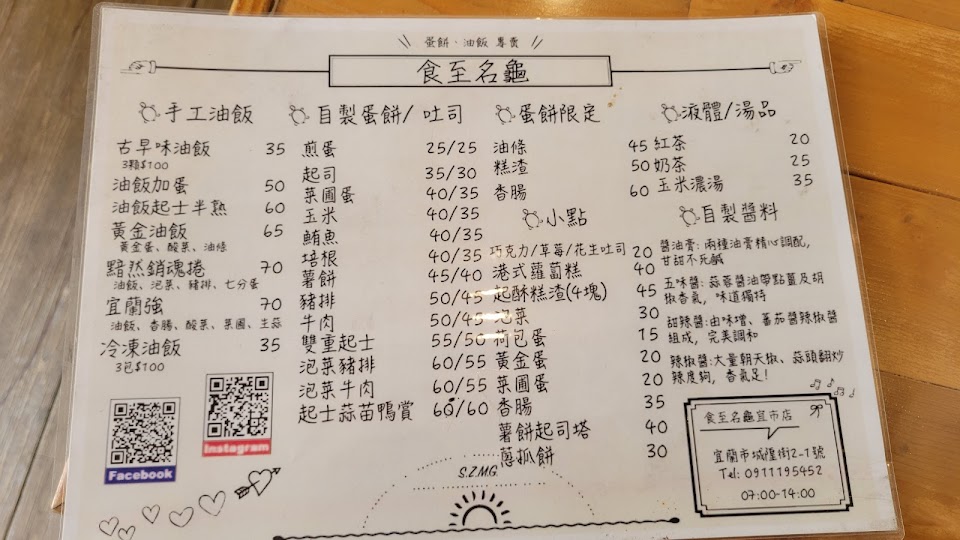 蛋餅、油飯 專賣
食至名龜
手工油飯
古早味油飯 35
3顆$100
油飯加蛋 50
油飯起士半熟 60
黃金油飯 65
黃金蛋、酸菜、油條
黯然銷魂捲 70
油飯、泡菜、豬排、七分蛋
宜蘭強 70
油飯、香腸、酸菜、菜圃、生蒜
冷凍油飯 35
3包$100
Facebook
Instagram
自製蛋餅/吐司
煎蛋 25/25
起司 35/30
菜圃蛋 40/35
玉米 40/35
鮪魚 40/35
培根 40/35
薯餅 45/40
豬排 50/45
牛肉 50/45
雙重起士 55/50
泡菜豬排 60/55
泡菜牛肉 60/55
起士蒜苗鴨賞 60/60
蛋餅限定
油條 45
糕渣 50
香腸 60
小點
巧克力/草莓/花生吐司 20
港式蘿蔔糕 40
起酥糕渣(4塊) 45
泡菜 30
荷包蛋 15
黃金蛋 20
菜圃蛋 20
香腸 35
薯餅起司塔 40
蔥抓餅 30
S.Z.M.G.
液體/湯品
紅茶 20
奶茶 25
玉米濃湯 35
自製醬料
醬油膏:兩種油膏精心調配,
甘甜不死鹹
五味醬:蒜蓉醬油帶點薑及胡
椒香氣,味道獨特
甜辣醬:由味增、番茄醬辣椒醬
組成,完美調和
辣椒醬:大量朝天椒、蒜頭翻炒
辣度夠,香氣足!
食至名龜宜市店
宜蘭市城隍街2-1號
Tel: 0911195452
07:00-14:00